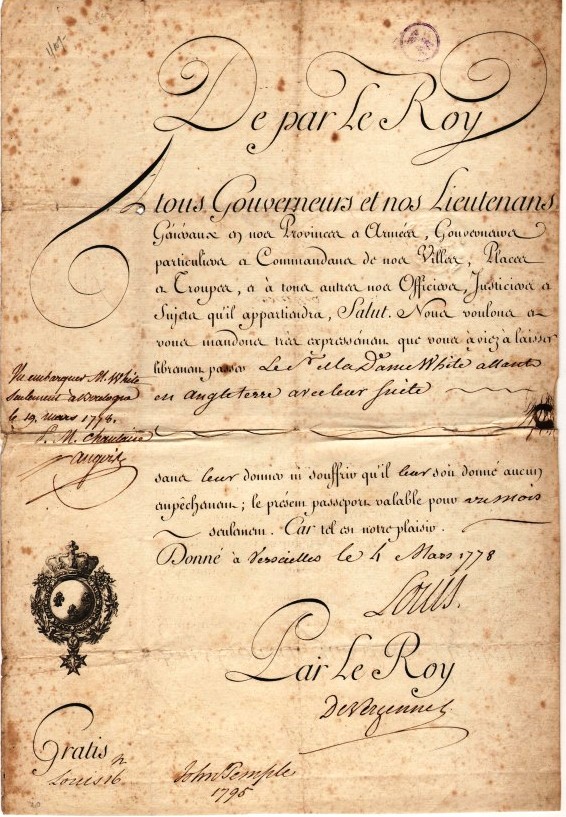 De par Le Roy
A tous Gouverneurs et nos Lieutenans
Généraux en nos Provinces et Armées, Gouverneurs
particuliers et Commandans de nos Villes, Places
et Troupes, et à tous autres nos Officiers, Justiciers et
Sujets qu'il appartiendra, Salut. Nous voulons et
vous mandons très expressément que vous ayiez à laisser
librement passer Le Sr. et la De. ame White allants
en angleterre avec leur Suite
sans leur donner ni souffrir qu'il leur soit donné aucun
empêchement; le présent passeport valable pour un mois
seulement. Car tel est notre plaisir.
Donné à Versailles le 4 Mars 1778
Louis.
Par Le Roy
De Vergennes
Vu embarquer M. White
seulement a Boulogne
le 19. mars 1778.
P. M.
Gratis
Louis 16
John Temple
1795